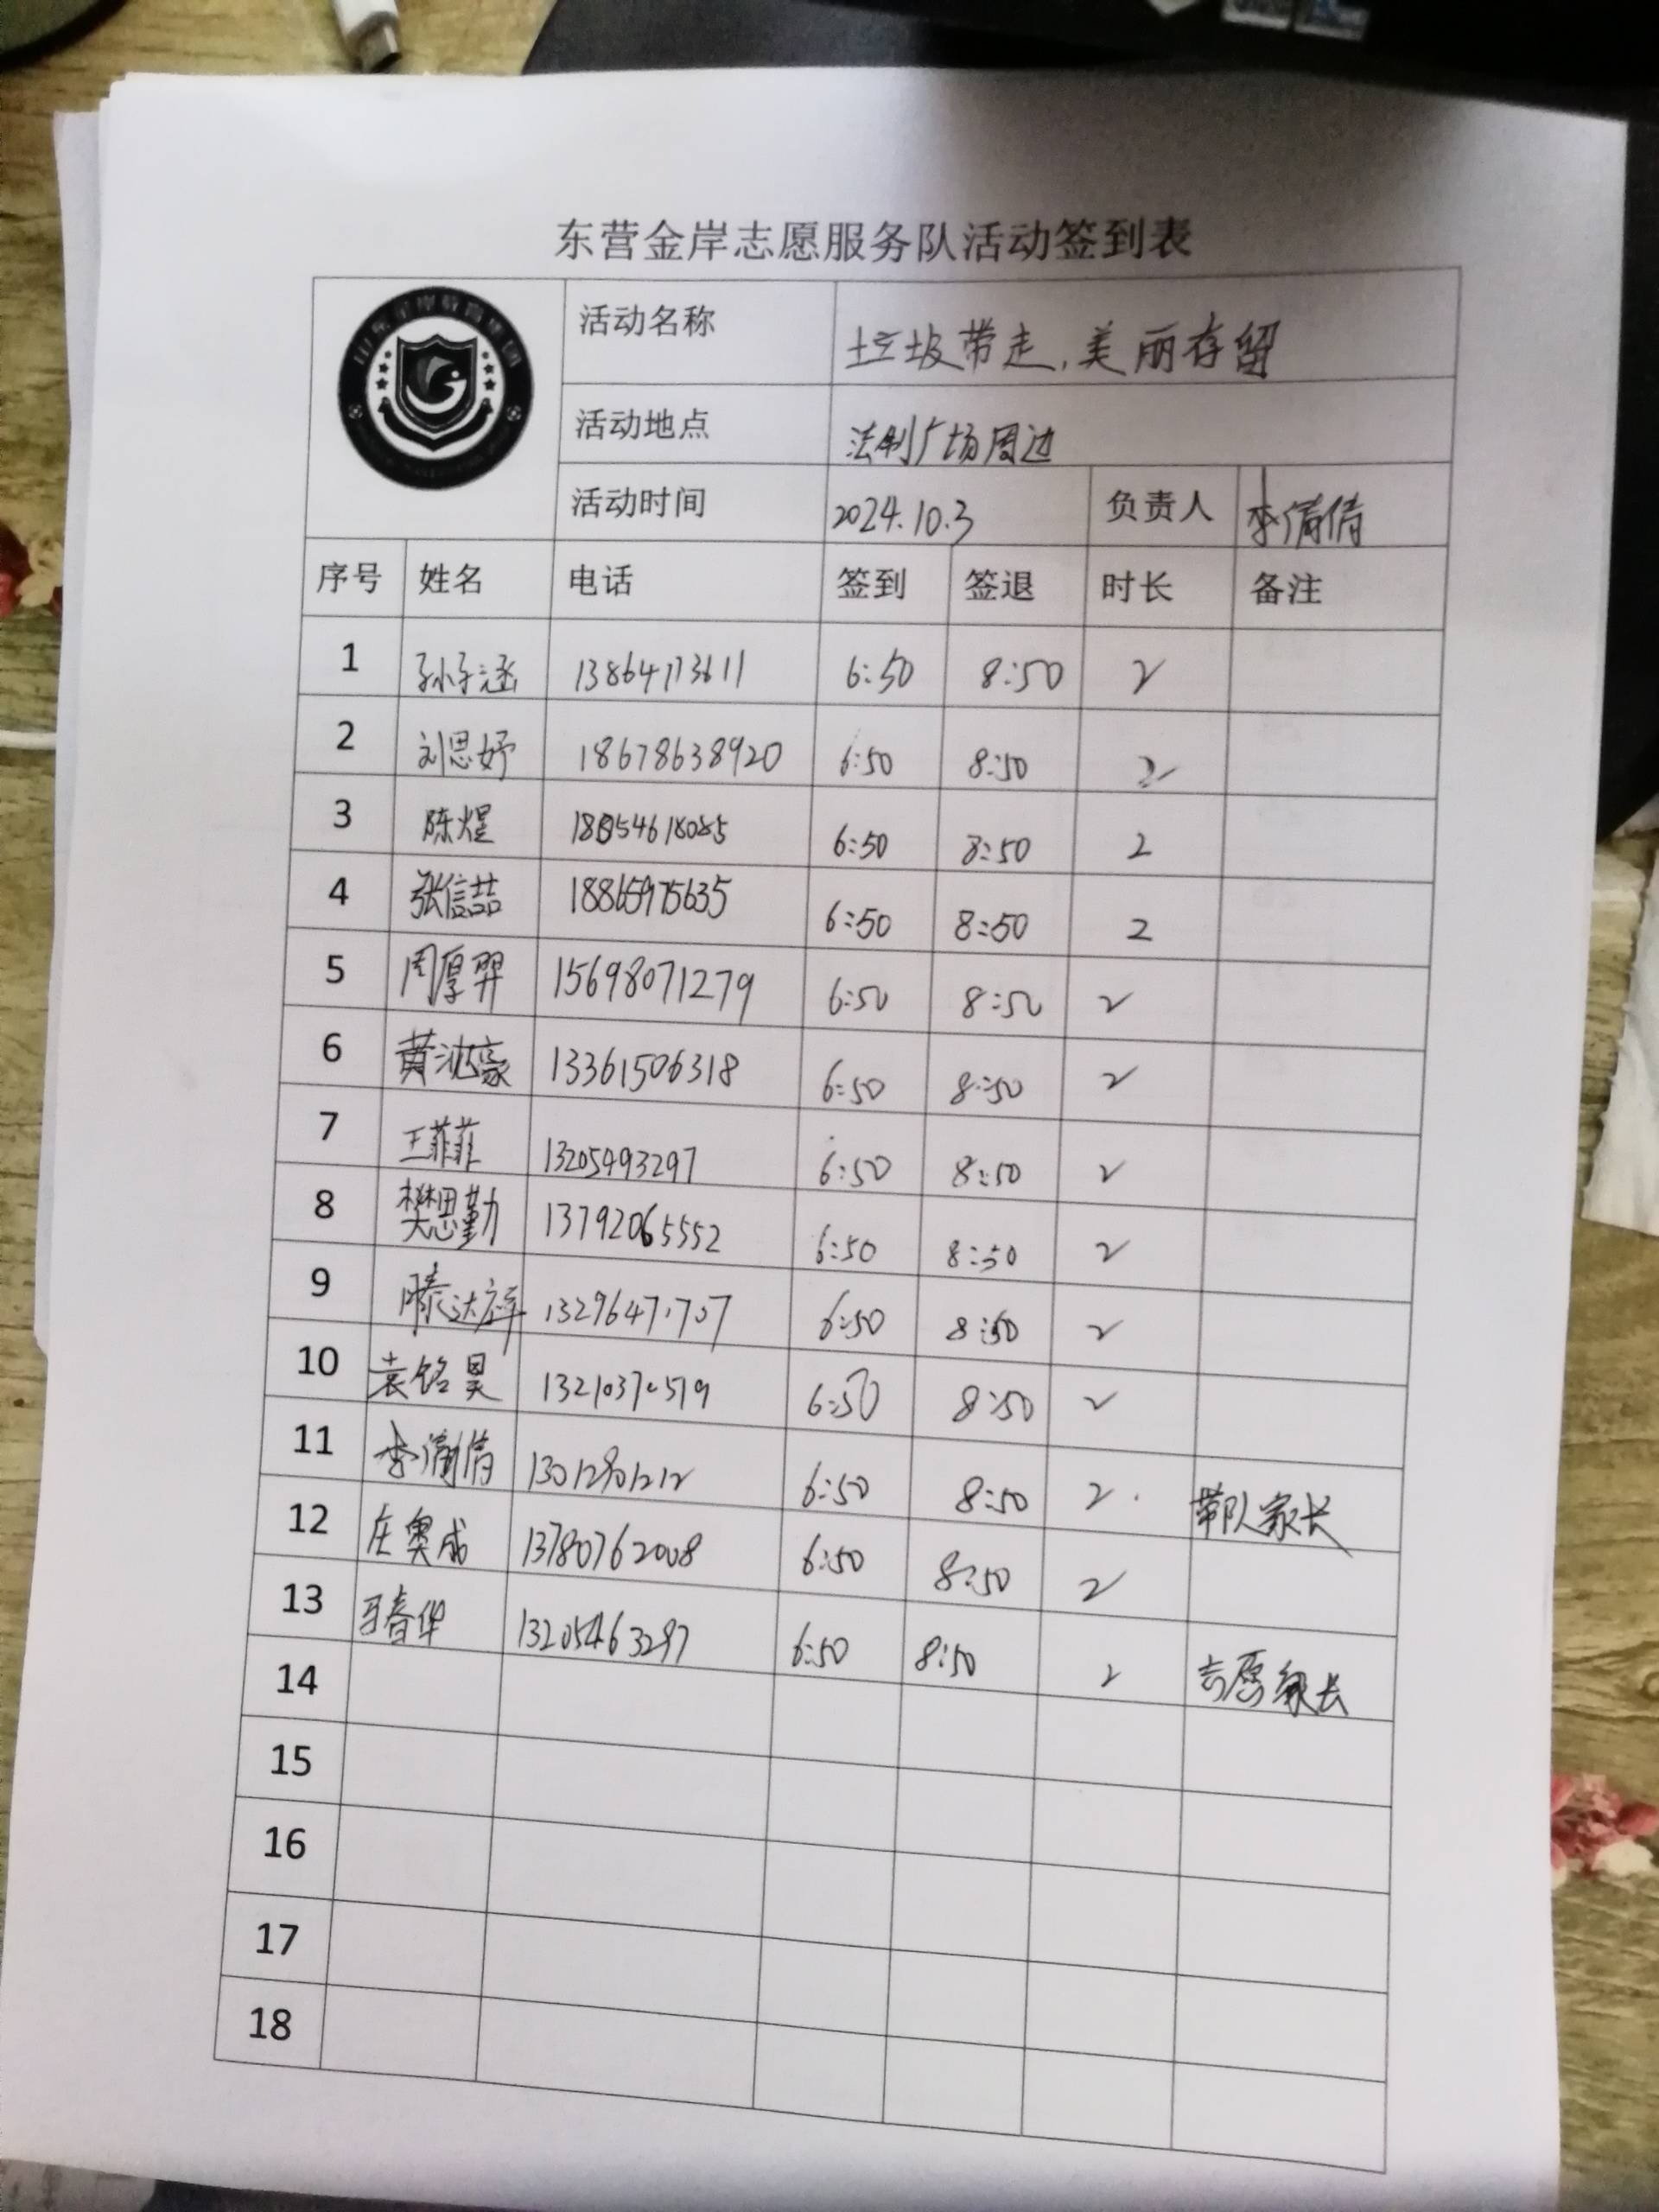 东营金岸志愿服务队活动签到表
活动名称 垃圾带走,美丽存留
活动地点 法制广场周边
活动时间 2024.10.3 负责人 李倩倩
序号 姓名 电话 签到 签退 时长 备注
1 孙子涵 13864113611 6:50 8:50 2
2 刘思妤 18678638920 6:50 8:50 2
3 陈煜 18054618085 6:50 8:50 2
4 张信喆 18865975635 6:50 8:50 2
5 周厚羿 15698071279 6:50 8:50 2
6 黄沈豪 13361506318 6:50 8:50 2
7 王菲菲 13205493297 6:50 8:50 2
8 樊思勤 13792065552 6:50 8:50 2
9 滕达祥 6:50 8:50 2
10 袁铭昊 13210370579 6:50 8:50 2
11 李倩倩 13012801212 6:50 8:50 2 带队家长
12 庄奥成 13780762008 6:50 8:50 2
13 春华 13205463297 6:50 8:50 2 志愿家长
14
15
16
17
18